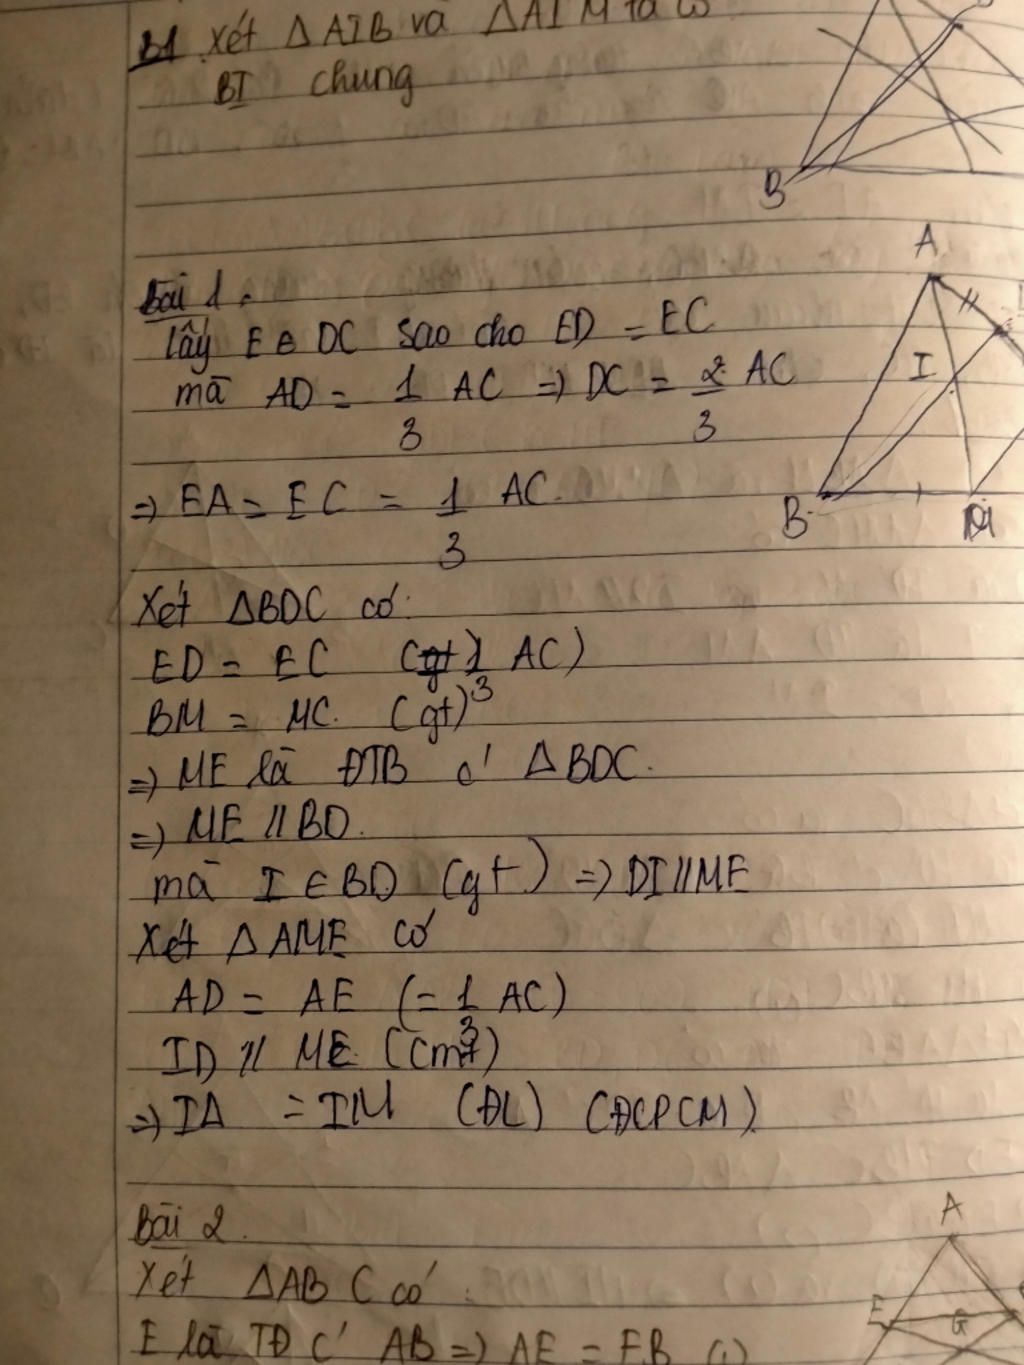 B1 Xét ΔAIB và ΔAIM ta có
BI chung
B
A
Bài 1.
lấy E ∈ DC sao cho ED = EC
mà AD = 1/3 AC => DC = 2/3 AC
I
=> EA = EC = 1/3 AC.
B
M
Xét ΔBDC có:
ED = EC (1/3 AC)
BM = MC. (gt)
=> ME là ĐTB c' ΔBDC.
=> ME // BD.
mà I ∈ BD (gt) => DI // ME
Xét ΔAME có
AD = AE (= 1/3 AC)
ID // ME (cmt)
=> IA = IM (ĐL) (ĐCPCM)
Bài 2.
A
Xét ΔABC có:
E
G
E là TĐ c' AB => AE = EB (1)